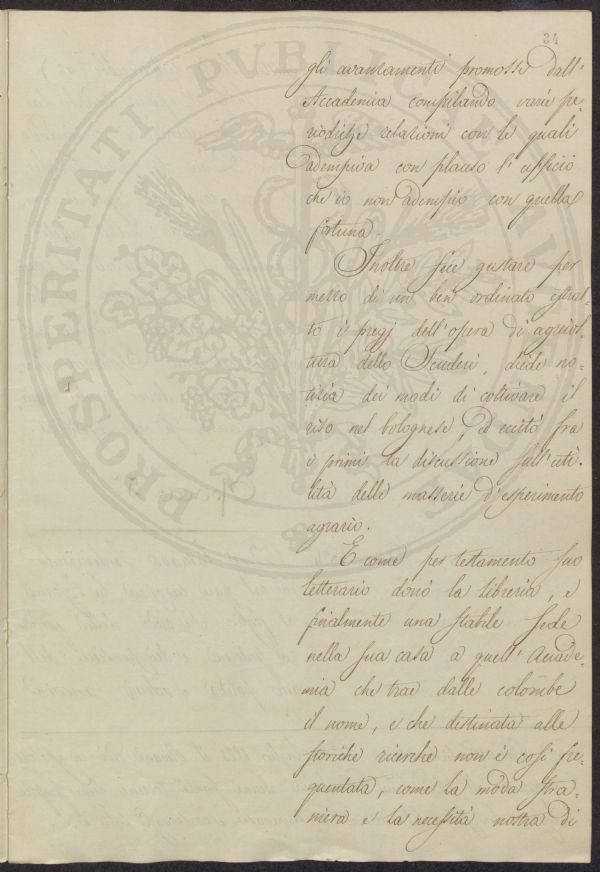 34
gli avanzamenti promossi dall'
Accademia compilando varie pe-
riodiche relazioni con le quali
adempiva con plauso l'uffício
che io non adempio con quella
fortuna.
Inoltre fece gustare per
mezzo di un ben ordinato estrat-
to i pregj dell'opera di agricol-
tura dello Scuderi, diede no-
tizia dei modi di coltivare il
riso nel bolognese, ed eccitò fra
i primi la discussione sull'uti-
lità delle masserie d'esperimento
agrario.
E come per testamento suo
letterario donò la libreria, e
finalmente una stabile sede
nella sua casa a quell'Accade-
mia che trae dalle colombe
il nome, e che destinata alle
storiche ricerche non è così fre-
quentata, come la moda stra-
niera e la necessità nostra di
PROSPERITATI PVBLICAE